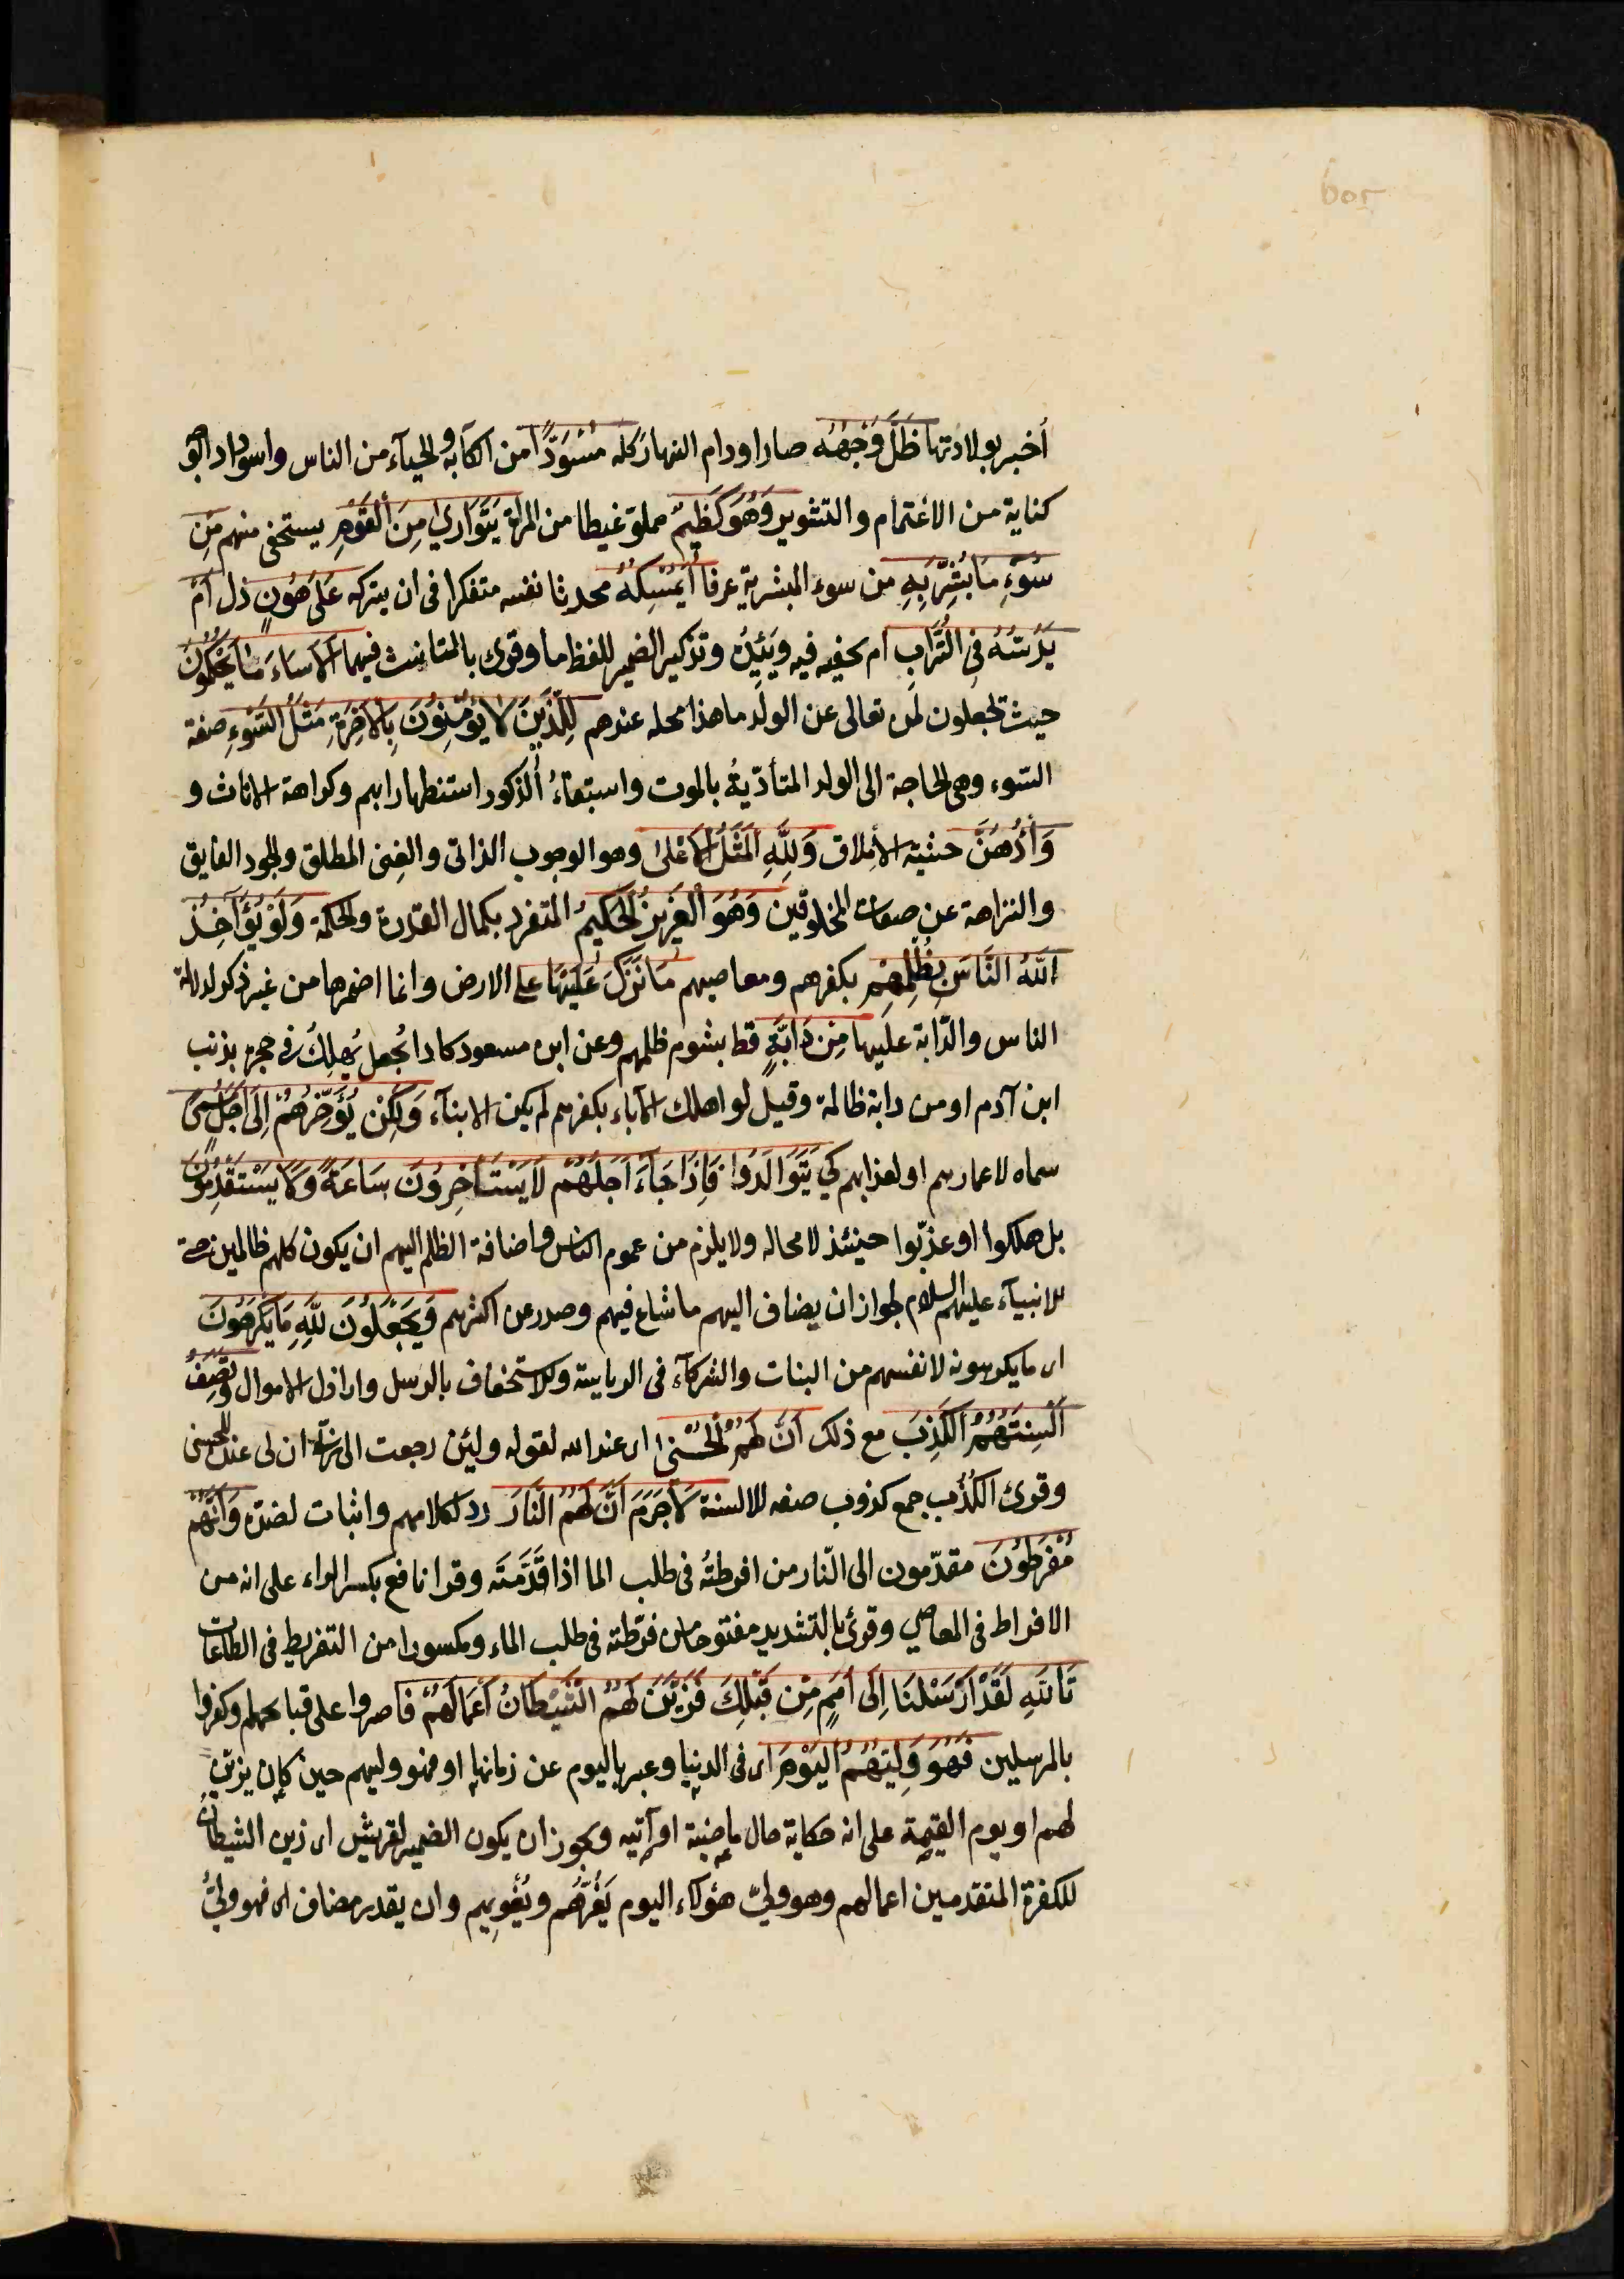 أخبر بولادتها ظَلَّ وَجْهُهُ صار او دام النهار كله مُسْوَدًّا من الكآبة والحيآء من الناس واسوداد الوجه
كناية من الاغتمام والتشوير وَهُوَ كَظِيمٌ مملوّ غيظا من المرأة يَتَوَارىٰ مِنَ الْقَوْمِ يستخفى منهم مِنْ
سُوۤءِ مَا بُشِّرَ بِهِ من سوء المبشر به عرفا أَيُمْسِكُهُ محدثا نفسه متفكرا فى ان يتركه عَلَىٰ هُونٍ ذل اَمْ
يَدُسُّهُ فِى التُّرَابِ ام يخفيه فيه وَيَئِدُهُ وتذكير الضمير للفظ ما وقرئ بالتانيث فيهما اَلَا سَاءَ مَا يَحْكُمُونَ
حيث تجعلون لمن تعالى عن الولد ما هذا محله عندهم لِلَّذِينَ لَا يُؤْمِنُونَ بِالْاٰخِرَةِ مَثَلُ السَّوْءِ صفة
السّوء وهى الحاجة الى الولد المتأدّيةُ بالموت واستبقاءُ الذكور استظهارا بهم وكراهة الاناث و
وَأْدُهُنَّ خشية الأملاق وَلِلّٰهِ الْمَثَلُ الْاَعْلىٰ وهو الوجوب الذاتى والغِنى المطلق والجود الفايق
والنزاهة عن صفات المخلوقين وَهُوَ الْعَزِيزُ الْحَكِيمُ المتفرد بكمال القدرة والحكمة وَلَوْ يُؤَاخِذُ
اللّٰهُ النَّاسَ بِظُلْمِهِمْ بكفرهم ومعاصيهم مَا تَرَكَ عَلَيْهَا على الارض وانما اضمرها من غير ذكر لدلالة
الناس والدّابة عليها مِنْ دَابَّةٍ قط بشوم ظلمهم وعن ابن مسعود كاد الجُعل يُهلِكُ فى حجره بذنب
ابن آدم او من دابة ظالمة وقيل لو اهلك الآباء بكفرهم لم يكن الابنآء وَلٰكِنْ يُؤَخِّرُهُمْ اِلىٰ اَجَلٍ مُسَمًّى
سماه لاعمارهم او لعذابهم كى يَتَوَالَدُوا فَاِذَا جَاۤءَ اَجَلُهُمْ لَا يَسْتَأْخِرُونَ سَاعَةً وَلَا يَسْتَقْدِمُونَ
بل هلكوا او عذّبوا حينئذ لا محالة ولا يلزم من عموم الناس واضافة الظلم اليهم ان يكون كلهم ظالمين حتى
للانبيآء عليهم السلام لجواز ان يضاف اليهم ما شاع فيهم وصدر عن اكثرهم وَيَجْعَلُونَ لِلّٰهِ مَا يَكْرَهُونَ
اى ما يكرهونه لانفسهم من البنات والشركآء فى الرياسة والاستخفاف بالرسل واراذل الاموال وَتَصِفُ
اَلْسِنَتُهُمُ الْكَذِبَ مع ذلك اَنَّ لَهُمُ الْحُسْنىٰ اى عند الله لقوله ولئن رجعت الى ربى ان لى عنده للحسنى
وقرئ الكُذُب جمع كذوب صفه للالسنة لَا جَرَمَ اَنَّ لَهُمُ النَّارَ رد لكلامهم واثبات لضدّه وَاَنَّهُمْ
مُفْرَطُونَ مقدّمون الى النّار من افرطتُه فى طلب الما اذا قَدَّمْتَه وقرا نافع بكسر الراء على انه من
الافراط فى المعاصى وقرئ بالتشديد مفتوحا من فرّطته فى طلب الماء ومكسورا من التفريط فى الطاعات
تَاللّٰهِ لَقَدْ اَرْسَلْنَا اِلىٰ اُمَمٍ مِنْ قَبْلِكَ فَزَيَّنَ لَهُمُ الشَّيْطَانُ اَعْمَالَهُمْ فاصروا على قبايحهم وكفروا
بالمرسلين فَهُوَ وَلِيُّهُمُ الْيَوْمَ اى فى الدنيا وعبر باليوم عن زمانها او فهو وليهم حين كان يزيّن
لهم او يوم القيمة على انه حكاية حال ماضية او آتيه ويجوز ان يكون الضمير لقريش اى زين الشيطانُ
للكفرة المتقدمين اعمالهم وهو ولىّ هؤلاء اليوم يَغُرُّهم ويُغْوِيهم وان يقدر مضاف اى فهو ولىُّ